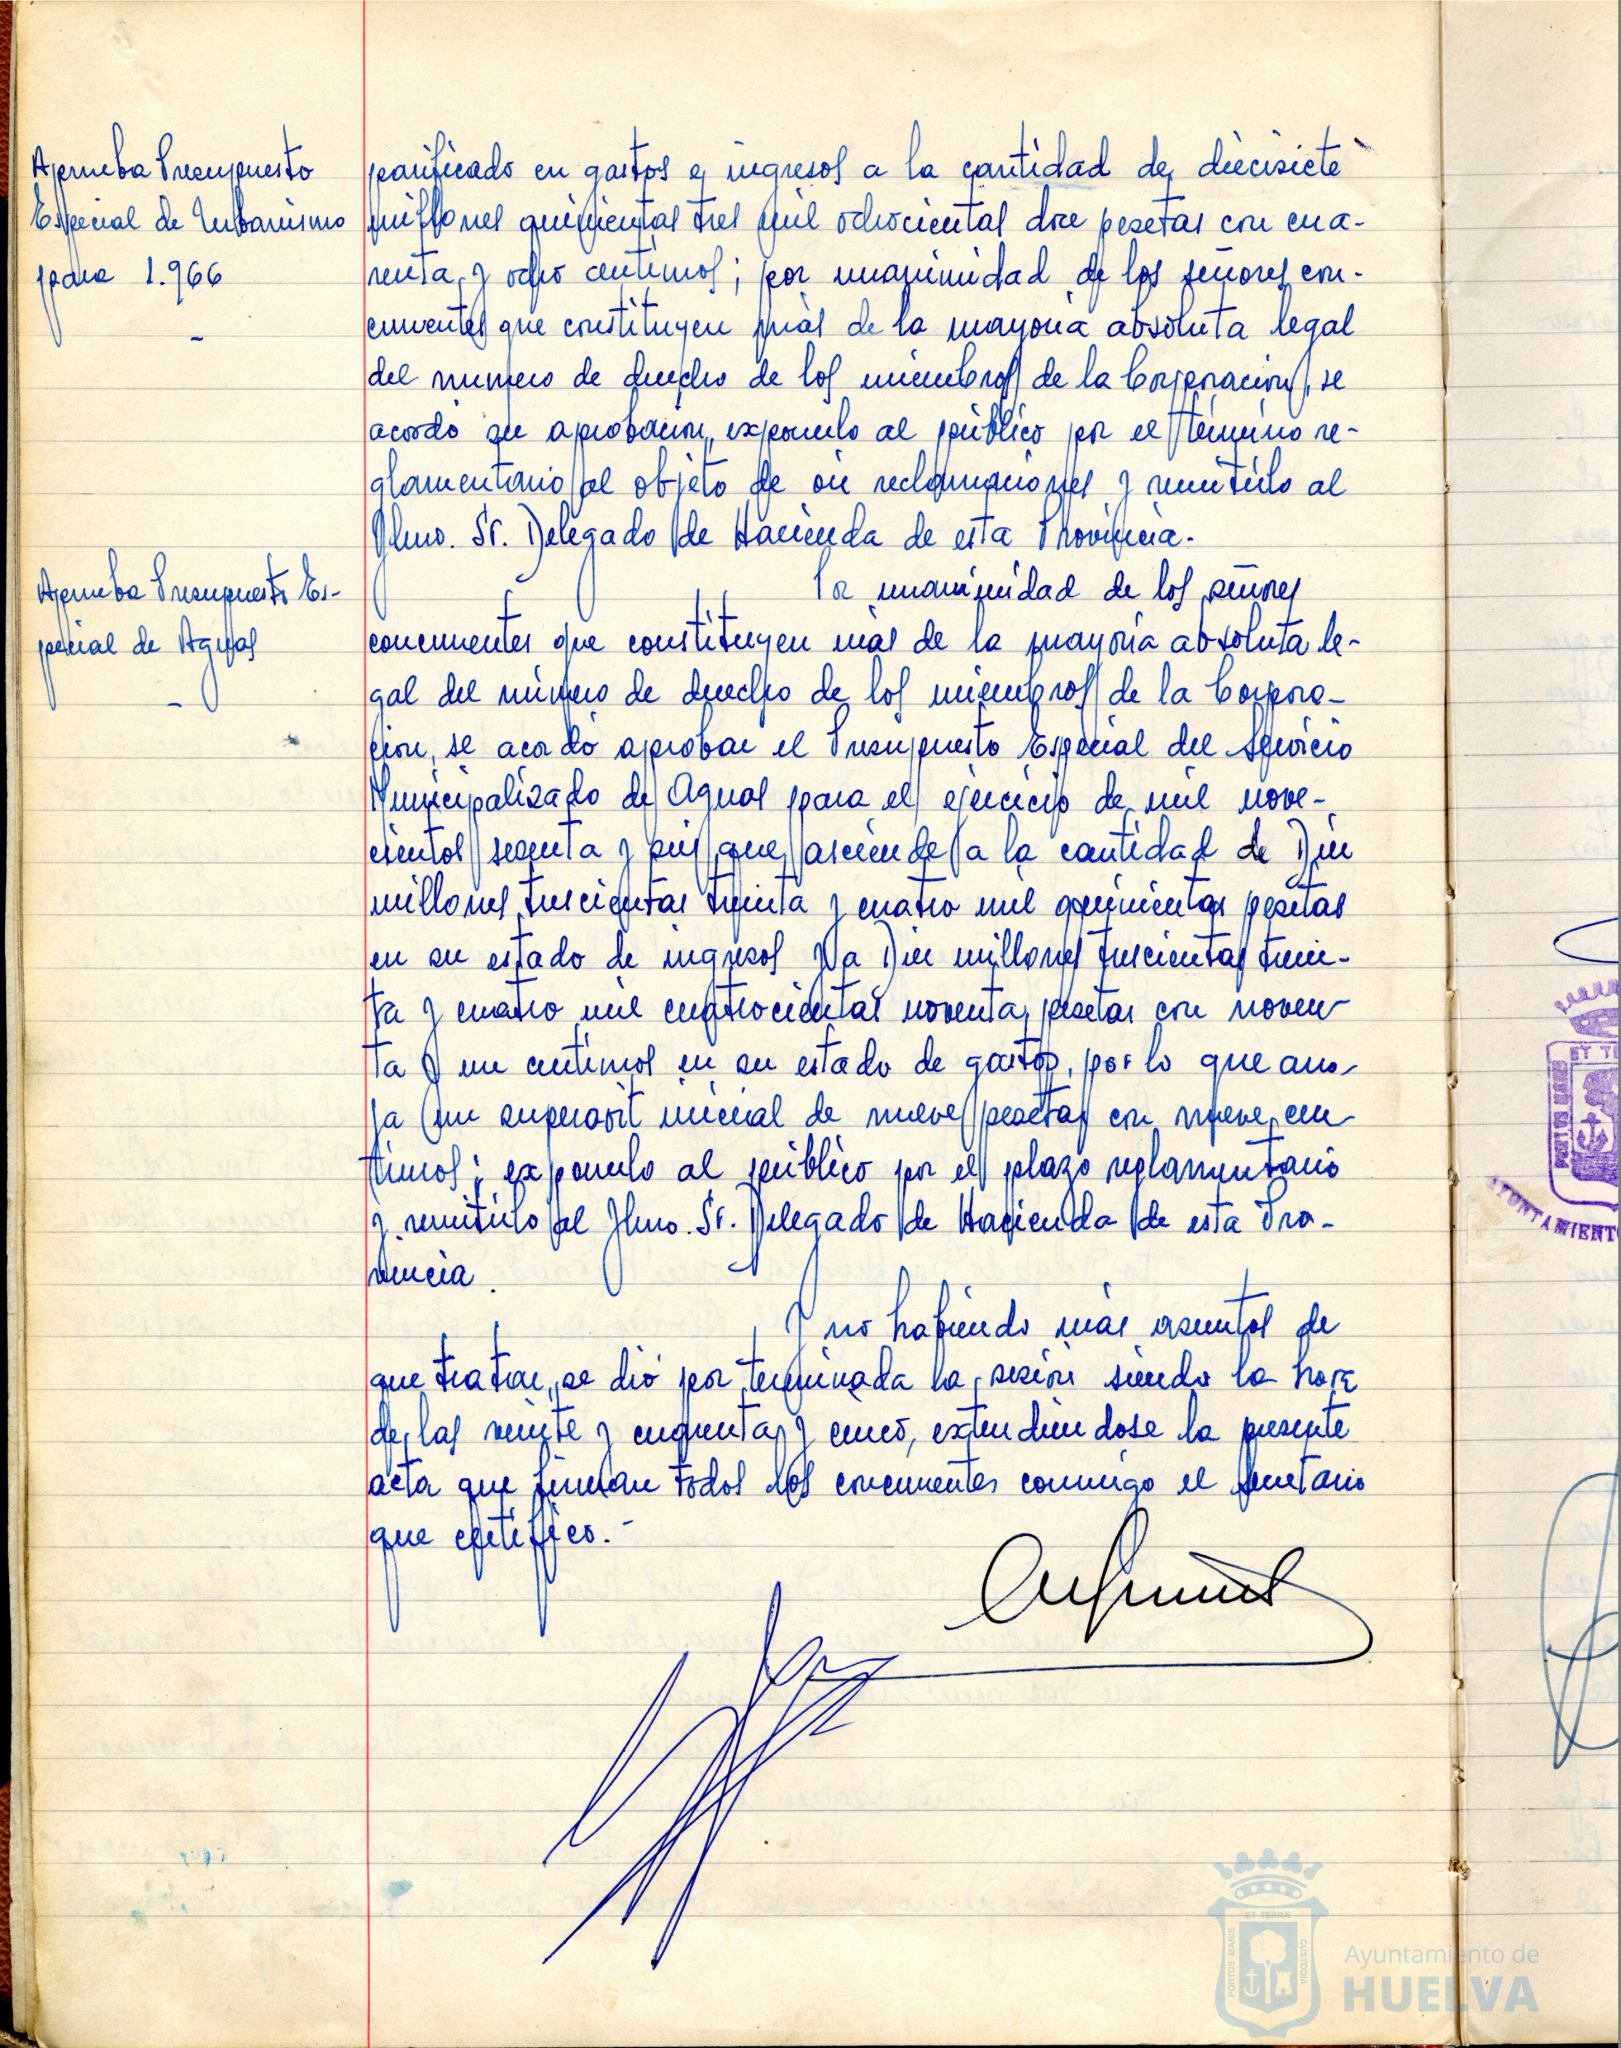 Aprueba Presupuesto
Especial de Urbanismo
para 1.966
parificado en gastos e ingresos a la cantidad de diecisiete
millones quinientas tres mil ochocientas doce pesetas con cua-
renta y ocho centimos; por unanimidad de los señores con-
currentes que constituyen más de la mayoria absoluta legal
del numero de derecho de los miembros de la Corporación, se
acordó su aprobación, exponerlo al público por el término re-
glamentario al objeto de oir reclamaciones y remitirlo al
Ilmo. Sr. Delegado de Hacienda de esta Provincia.
Aprueba Presupuesto Es-
pecial de Aguas
Por unanimidad de los señores
concurrentes que constituyen más de la mayoria absoluta le-
gal del número de derecho de los miembros de la Corpora-
cion, se acordó aprobar el Presupuesto Especial del Servicio
Municipalizado de Aguas para el ejercicio de mil nove-
cientos sesenta y seis que asciende a la cantidad de Diez
millones trescientas treinta y cuatro mil quinientas pesetas
en su estado de ingresos y a Diez millones trescientas trein-
ta y cuatro mil cuatrocientas noventa pesetas con noven
ta y un centimos en su estado de gastos, por lo que arro
ja un superavit inicial de nueve pesetas con nueve cen
timos; exponerlo al público por el plazo reglamentario
y remitirlo al Ilmo. Sr. Delegado de Hacienda de esta Pro-
vincia.
Y no habiendo más asuntos de
que tratar, se dió por terminada la sesión siendo la hora
de las veinte y cincuenta y cinco, extendiendose la presente
acta que firman todos los concurrentes conmigo el Secretario
que certifico.-
ET TE
PORTUS MARIS
AYUNTAMIENT
ET TERRÆ
PORTUS MARIS
CUSTODIA
Ayuntamiento de
HUELVA